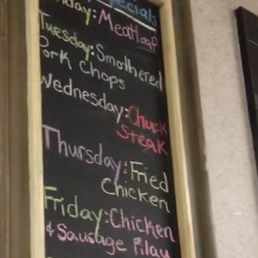 Specials
nday: Meatloaf
Tuesday: Smothered
Pork Chops
Wednesday: Chuck
Steak
Thursday: Fried
Chicken
Friday: Chicken
& Sausage Pilau